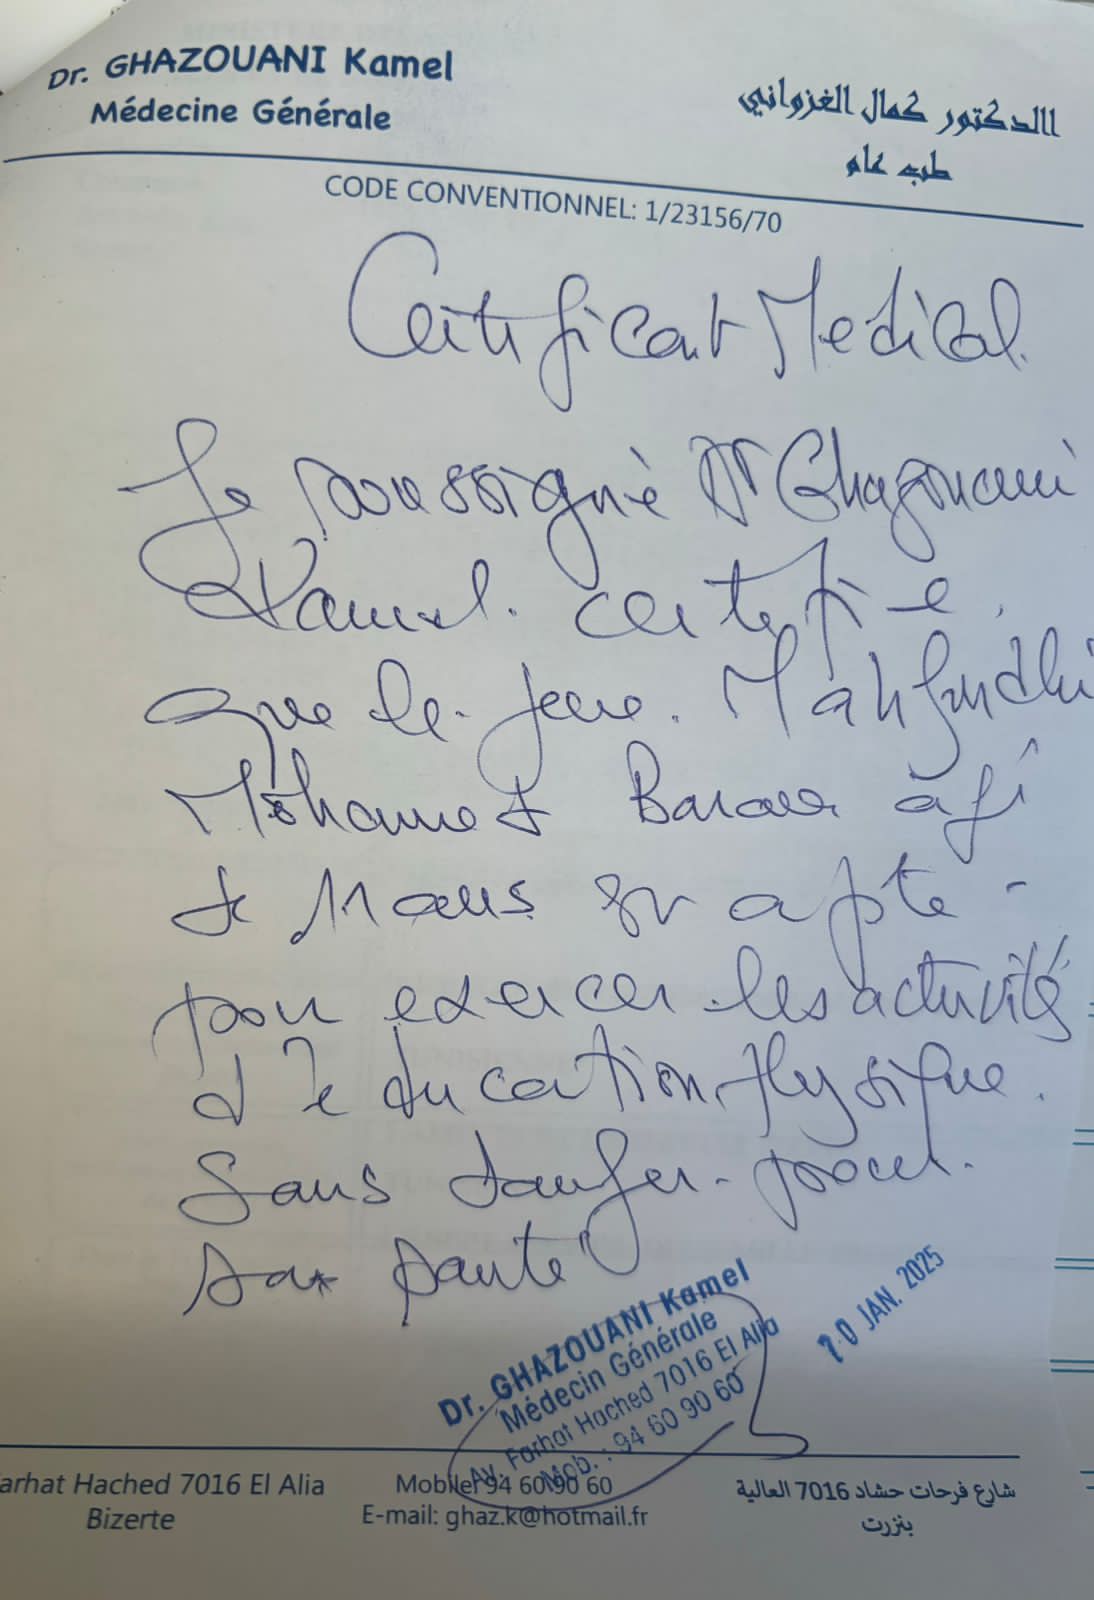 Dr. GHAZOUANI Kamel
Médecine Générale
االدكتور كمال الغزواني
طب عام
CODE CONVENTIONNEL: 1/23156/70
Certificat Medical.
Je soussigné Dr Ghazouani
Kamel. certifie
que le jeune. Mahfudhi
Mohamed âgé
de 11 ans est apte -
pour exercer les activités
d'éducation physique.
Sans danger pour
sa santé
Dr. GHAZOUANI Kamel
Médecin Générale
Av. Farhat Hached 7016 El Alia
Mob. : 94 60 90 60
20 JAN. 2025
arhat Hached 7016 El Alia
Bizerte
Mobile: 94 60 90 60
E-mail: ghaz.k@hotmail.fr
شارع فرحات حشاد 7016 العالية
بنزرت